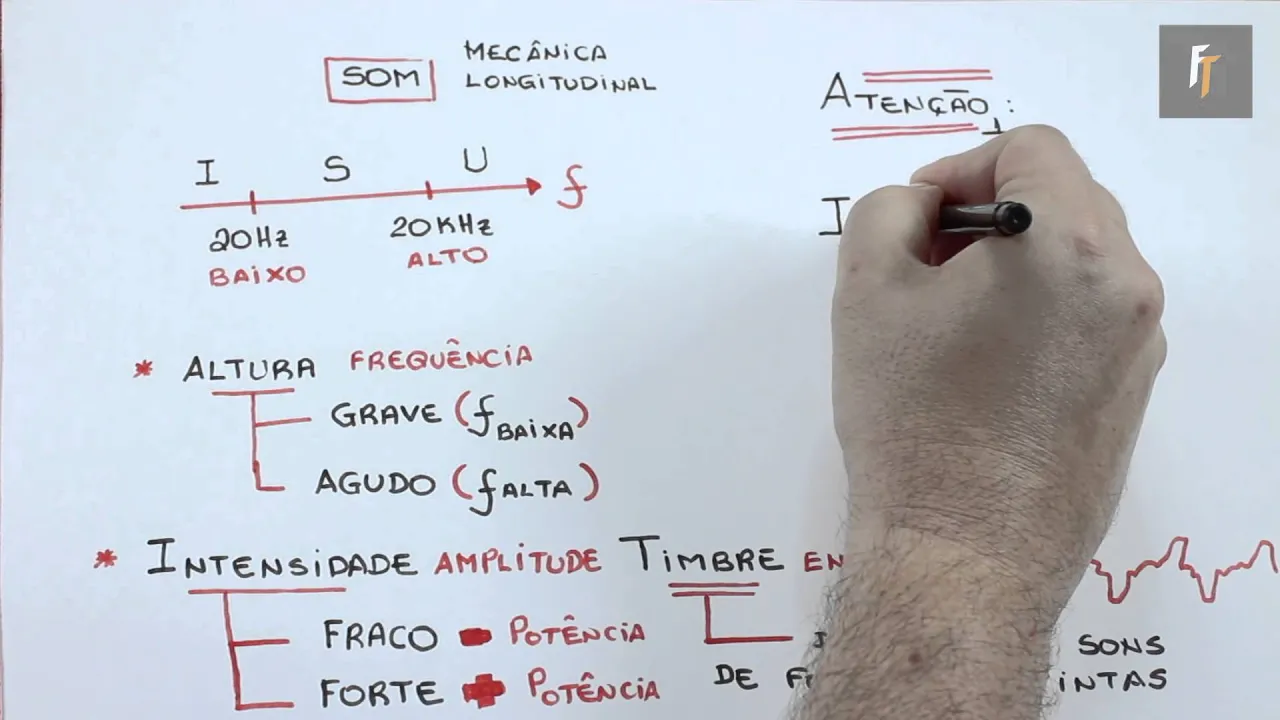 SOM
MECÂNICA
LONGITUDINAL
I S U
f
20Hz 20KHz
BAIXO ALTO
* ALTURA FREQUÊNCIA
GRAVE (f BAIXA)
AGUDO (f ALTA)
* INTENSIDADE AMPLITUDE
FRACO - POTÊNCIA
FORTE + POTÊNCIA
TIMBRE
SONS
DE
ATENÇÃO:
I
FT